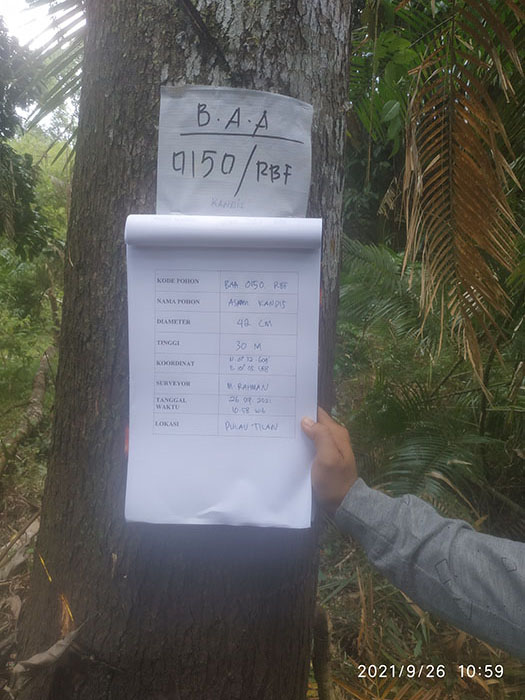 B.A.A
0150/RBF
KANDIS
KODE POHON BAA 0150. RBF
NAMA POHON ASAM KANDIS
DIAMETER 42 CM
TINGGI 30 M
KOORDINAT
SURVEYOR M. RAHMAN
TANGGAL 26 09 2021
WAKTU 10:58 WIB
LOKASI PULAU TILAN
2021/9/26 10:59